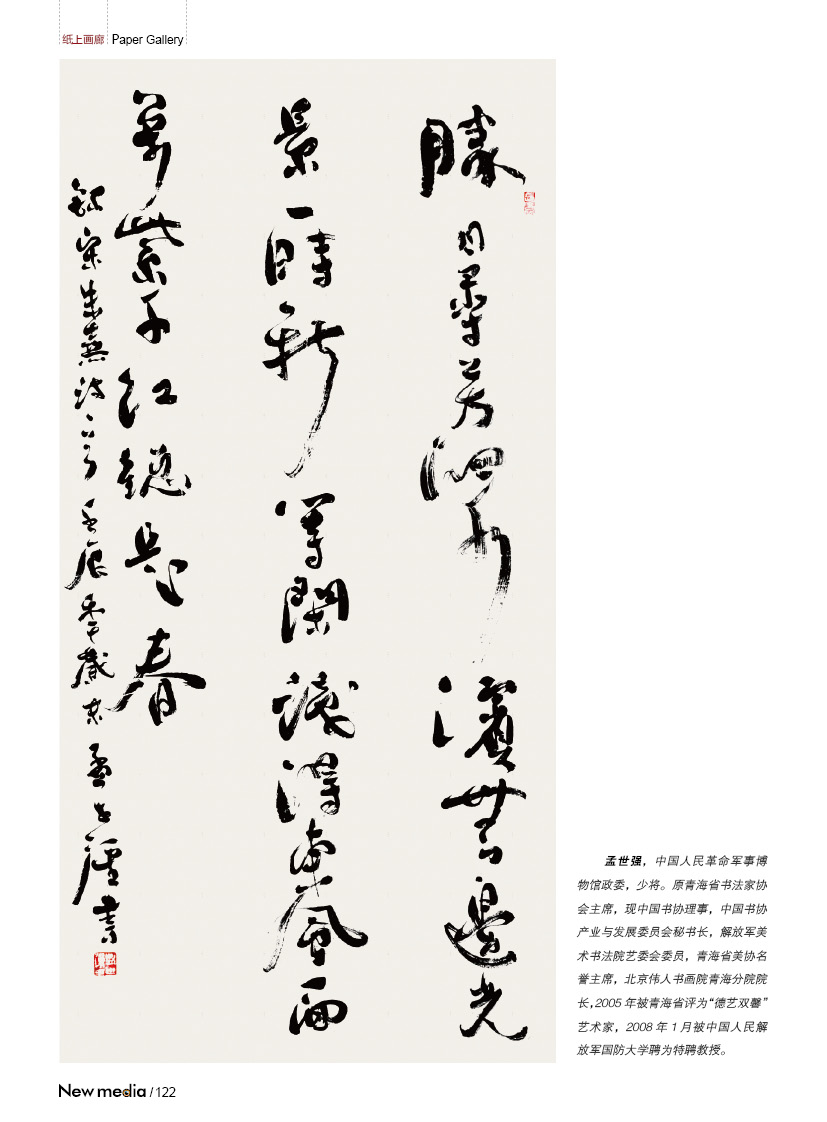 纸上画廊 Paper Gallery
勝日尋芳泗水濱無邊光
景一時新等閑識得東風面
萬紫千紅總是春
錄宋朱熹詩一首壬辰年歲末孟世强書
孟世强，中国人民革命军事博
物馆政委，少将。原青海省书法家协
会主席，现中国书协理事，中国书协
产业与发展委员会秘书长，解放军美
术书法院艺委会委员，青海省美协名
誉主席，北京伟人书画院青海分院院
长，2005 年被青海省评为“德艺双馨”
艺术家，2008 年 1 月被中国人民解
放军国防大学聘为特聘教授。
New media / 122